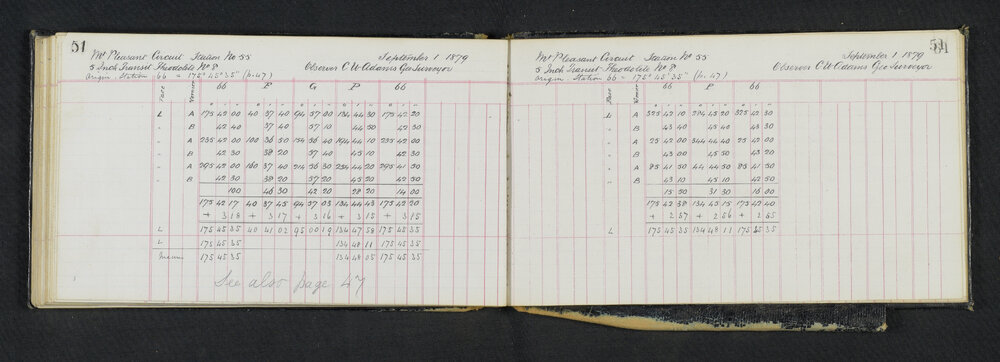 51
Mt Pleasant Circuit Station No 55 September 1. 1879
5 Inch Transit Theodolite No 8 Observer C W Adams Geo Surveyor
Origin, Station 66 = 175° 45' 35" (p. 47)
Face Vernier 66 E G P 66
L A 175 42 00 40 37 40 94 57 00 134 44 30 175 42 20
" B 42 40 37 40 57 10 44 50 42 30
" A 235 42 00 100 36 50 154 56 40 194 44 10 235 42 00
" B 42 30 38 20 57 40 45 10 42 30
" A 295 42 00 160 37 40 214 56 30 254 44 20 295 41 50
" B 42 30 38 20 57 20 45 20 42 50
100 46 30 42 20 28 20 14 00
175 42 17 40 37 45 94 57 03 134 44 43 175 42 20
+ 3 18 + 3 17 + 3 16 + 3 15 + 3 15
L 175 45 35 40 41 02 95 00 19 134 47 58 175 45 35
L 175 45 35 134 48 11 175 45 35
Means 175 45 35 134 48 05 175 45 35
See also page 47
51
Mt Pleasant Circuit Station No 55 September 1. 1879
5 Inch Transit Theodolite No 8 Observer C W Adams Geo Surveyor
Origin Station 66 = 175° 45' 35" (p. 47)
Face Vernier 66 P 66
L A 325 42 10 284 45 20 325 42 30
" B 43 40 45 40 43 30
" A 25 42 00 344 44 40 25 42 00
" B 43 00 45 50 43 20
" A 85 41 50 44 44 50 85 41 50
" B 43 10 45 10 42 50
15 50 31 30 16 00
175 42 38 134 45 15 175 42 40
+ 2 57 + 2 56 + 2 55
L 175 45 35 134 48 11 175 45 35